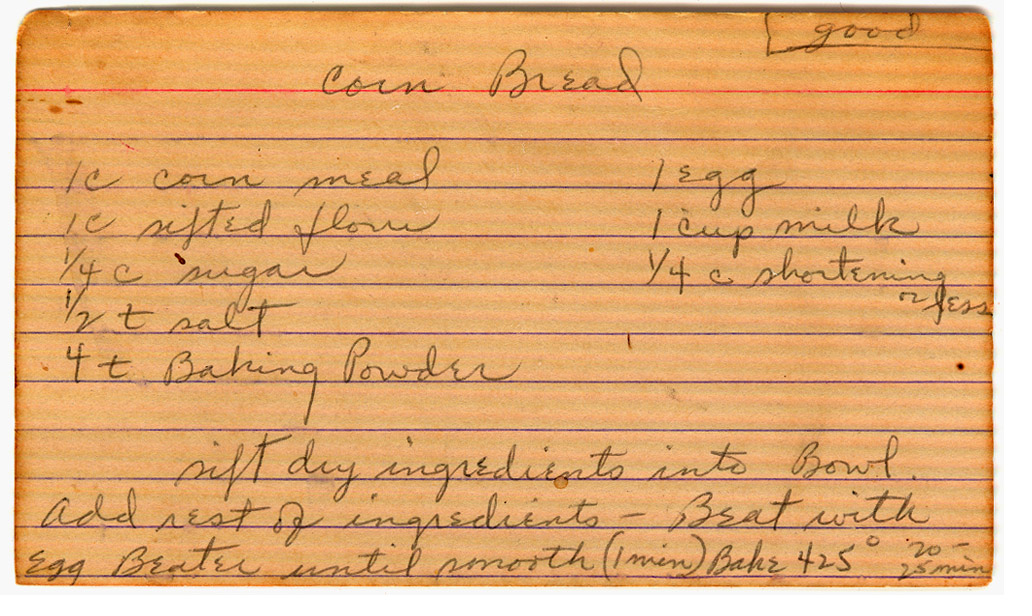 good
Corn Bread
1c corn meal
1c sifted flour
1/4 c sugar
1/2 t salt
4 t Baking Powder
1 egg
1 cup milk
1/4 c shortening
or less
sift dry ingredients into Bowl.
Add rest of ingredients - Beat with
Egg Beater until smooth (1 min) Bake 425° 20-
25 min